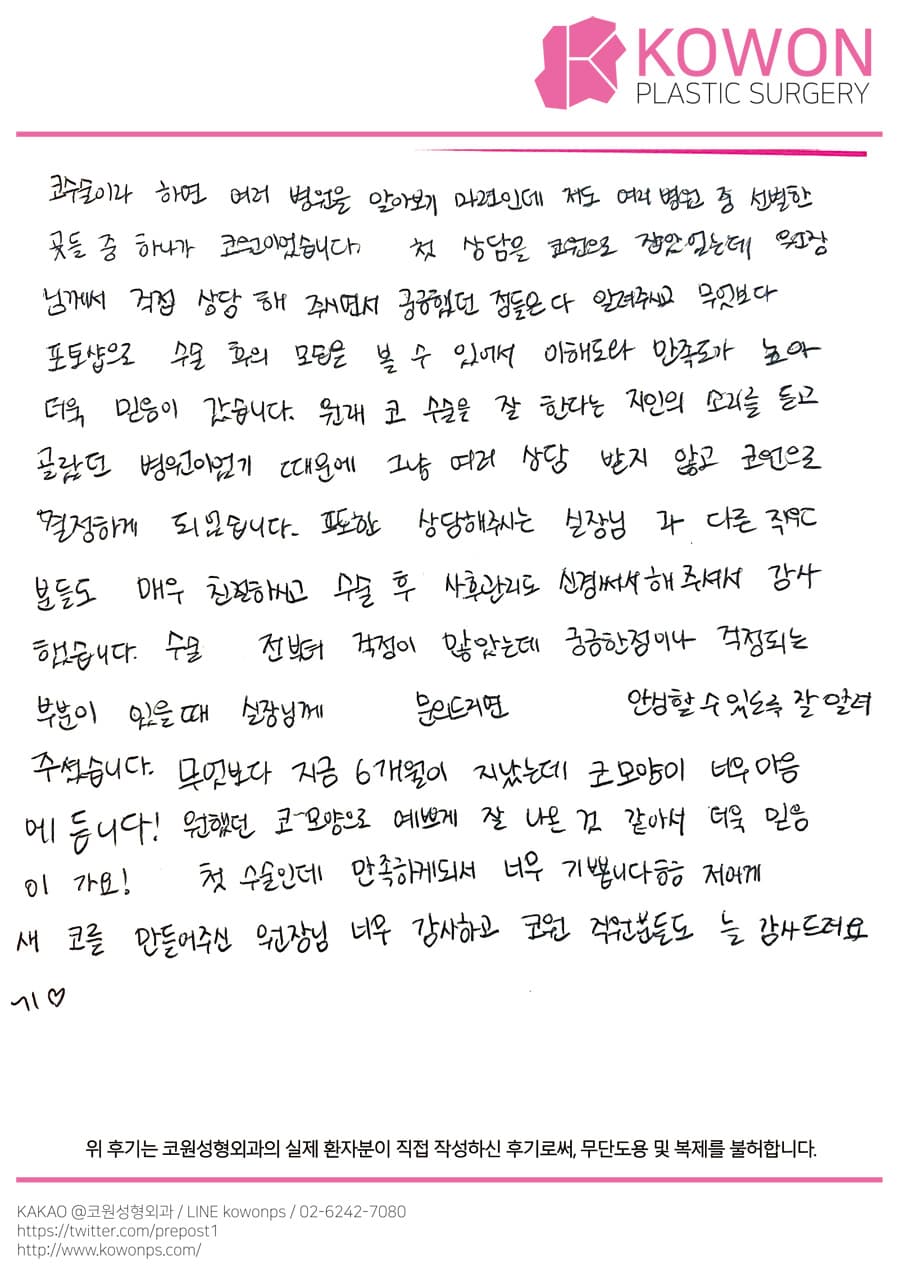 KOWON
PLASTIC SURGERY
코수술이라 하면 여러 병원을 알아보기 마련인데 저도 여러 병원 중 선별한
곳들 중 하나가 코원이었습니다. 첫 상담을 코원으로 잡았었는데 원장
님께서 직접 상담 해 주시면서 궁금했던 점들은 다 알려주시고 무엇보다
포토샵으로 수술 후의 모습을 볼 수 있어서 이해도와 만족도가 높아
더욱 믿음이 갔습니다. 원래 코 수술을 잘 한다는 지인의 소리를 듣고
골랐던 병원이었기 때문에 그냥 여러 상담 받지 않고 코원으로
결정하게 되었습니다. 또한 상담해주시는 실장님 과 다른 직원
분들도 매우 친절하시고 수술 후 사후관리도 신경써서 해 주셔서 감사
했습니다. 수술 전부터 걱정이 많았는데 궁금한점이나 걱정되는
부분이 있을때 실장님께 문의드리면 안심할 수 있도록 잘 알려
주셨습니다. 무엇보다 지금 6개월이 지났는데 코모양이 너무 마음
에 듭니다! 원했던 코 모양으로 예쁘게 잘 나온 것 같아서 더욱 믿음
이 가요! 첫 수술인데 만족하게되서 너무 기쁩니다ㅎㅎ 저에게
새 코를 만들어주신 원장님 너무 감사하고 코원 직원분들도 늘 감사드려요
~!♡
위 후기는 코원성형외과의 실제 환자분이 직접 작성하신 후기로써, 무단도용 및 복제를 불허합니다.
KAKAO @코원성형외과 / LINE kowonps / 02-6242-7080
https://twitter.com/prepost1
http://www.kowonps.com/